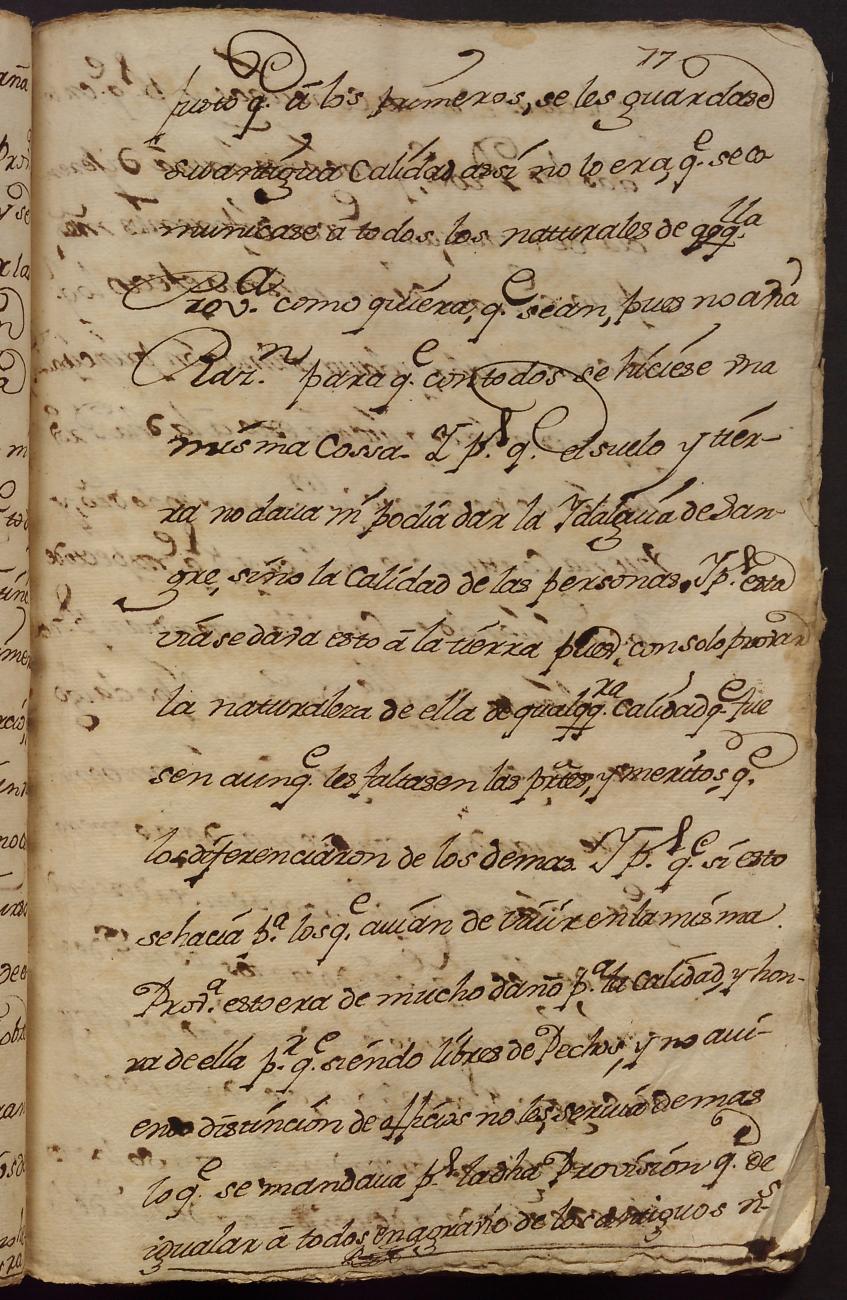 77
justo q.e á los primeros, se les guardase
su antigua calidad assi no lo era q.e se co
municase á todos los natturales de aqq.lla
Prov.a como quiera q.e sean, pues no avia
Raz.n para q.e con todos se hiciese una
misma Cossa. Y p.r q.e el suelo y tier-
ra no daua ni podia dar la Ydalguia de San-
gre, sino la Calidad de las personas. Y p.r esta
via se dava esto á la tierra pues, con solo provar
la naturaleza de ella de qualqq.ra calidad q.e fue
sen aunq.e les faltasen las prtes, y meritos q.e
los diferenciaron de los demas. Y p.r q.e si esto
se hacia p.a los q.e auian de viuir en la misma
Prov.a esto era de mucho daño p.a la calidad, y hon-
ra de ella p.r q.e siendo libres de Pechos, y no aui-
endo distincion de officios no les serviria de mas
lo q.e se mandaua p.r la dha Provision q.e de
igualar á todos en agravio de los antiguos n.s